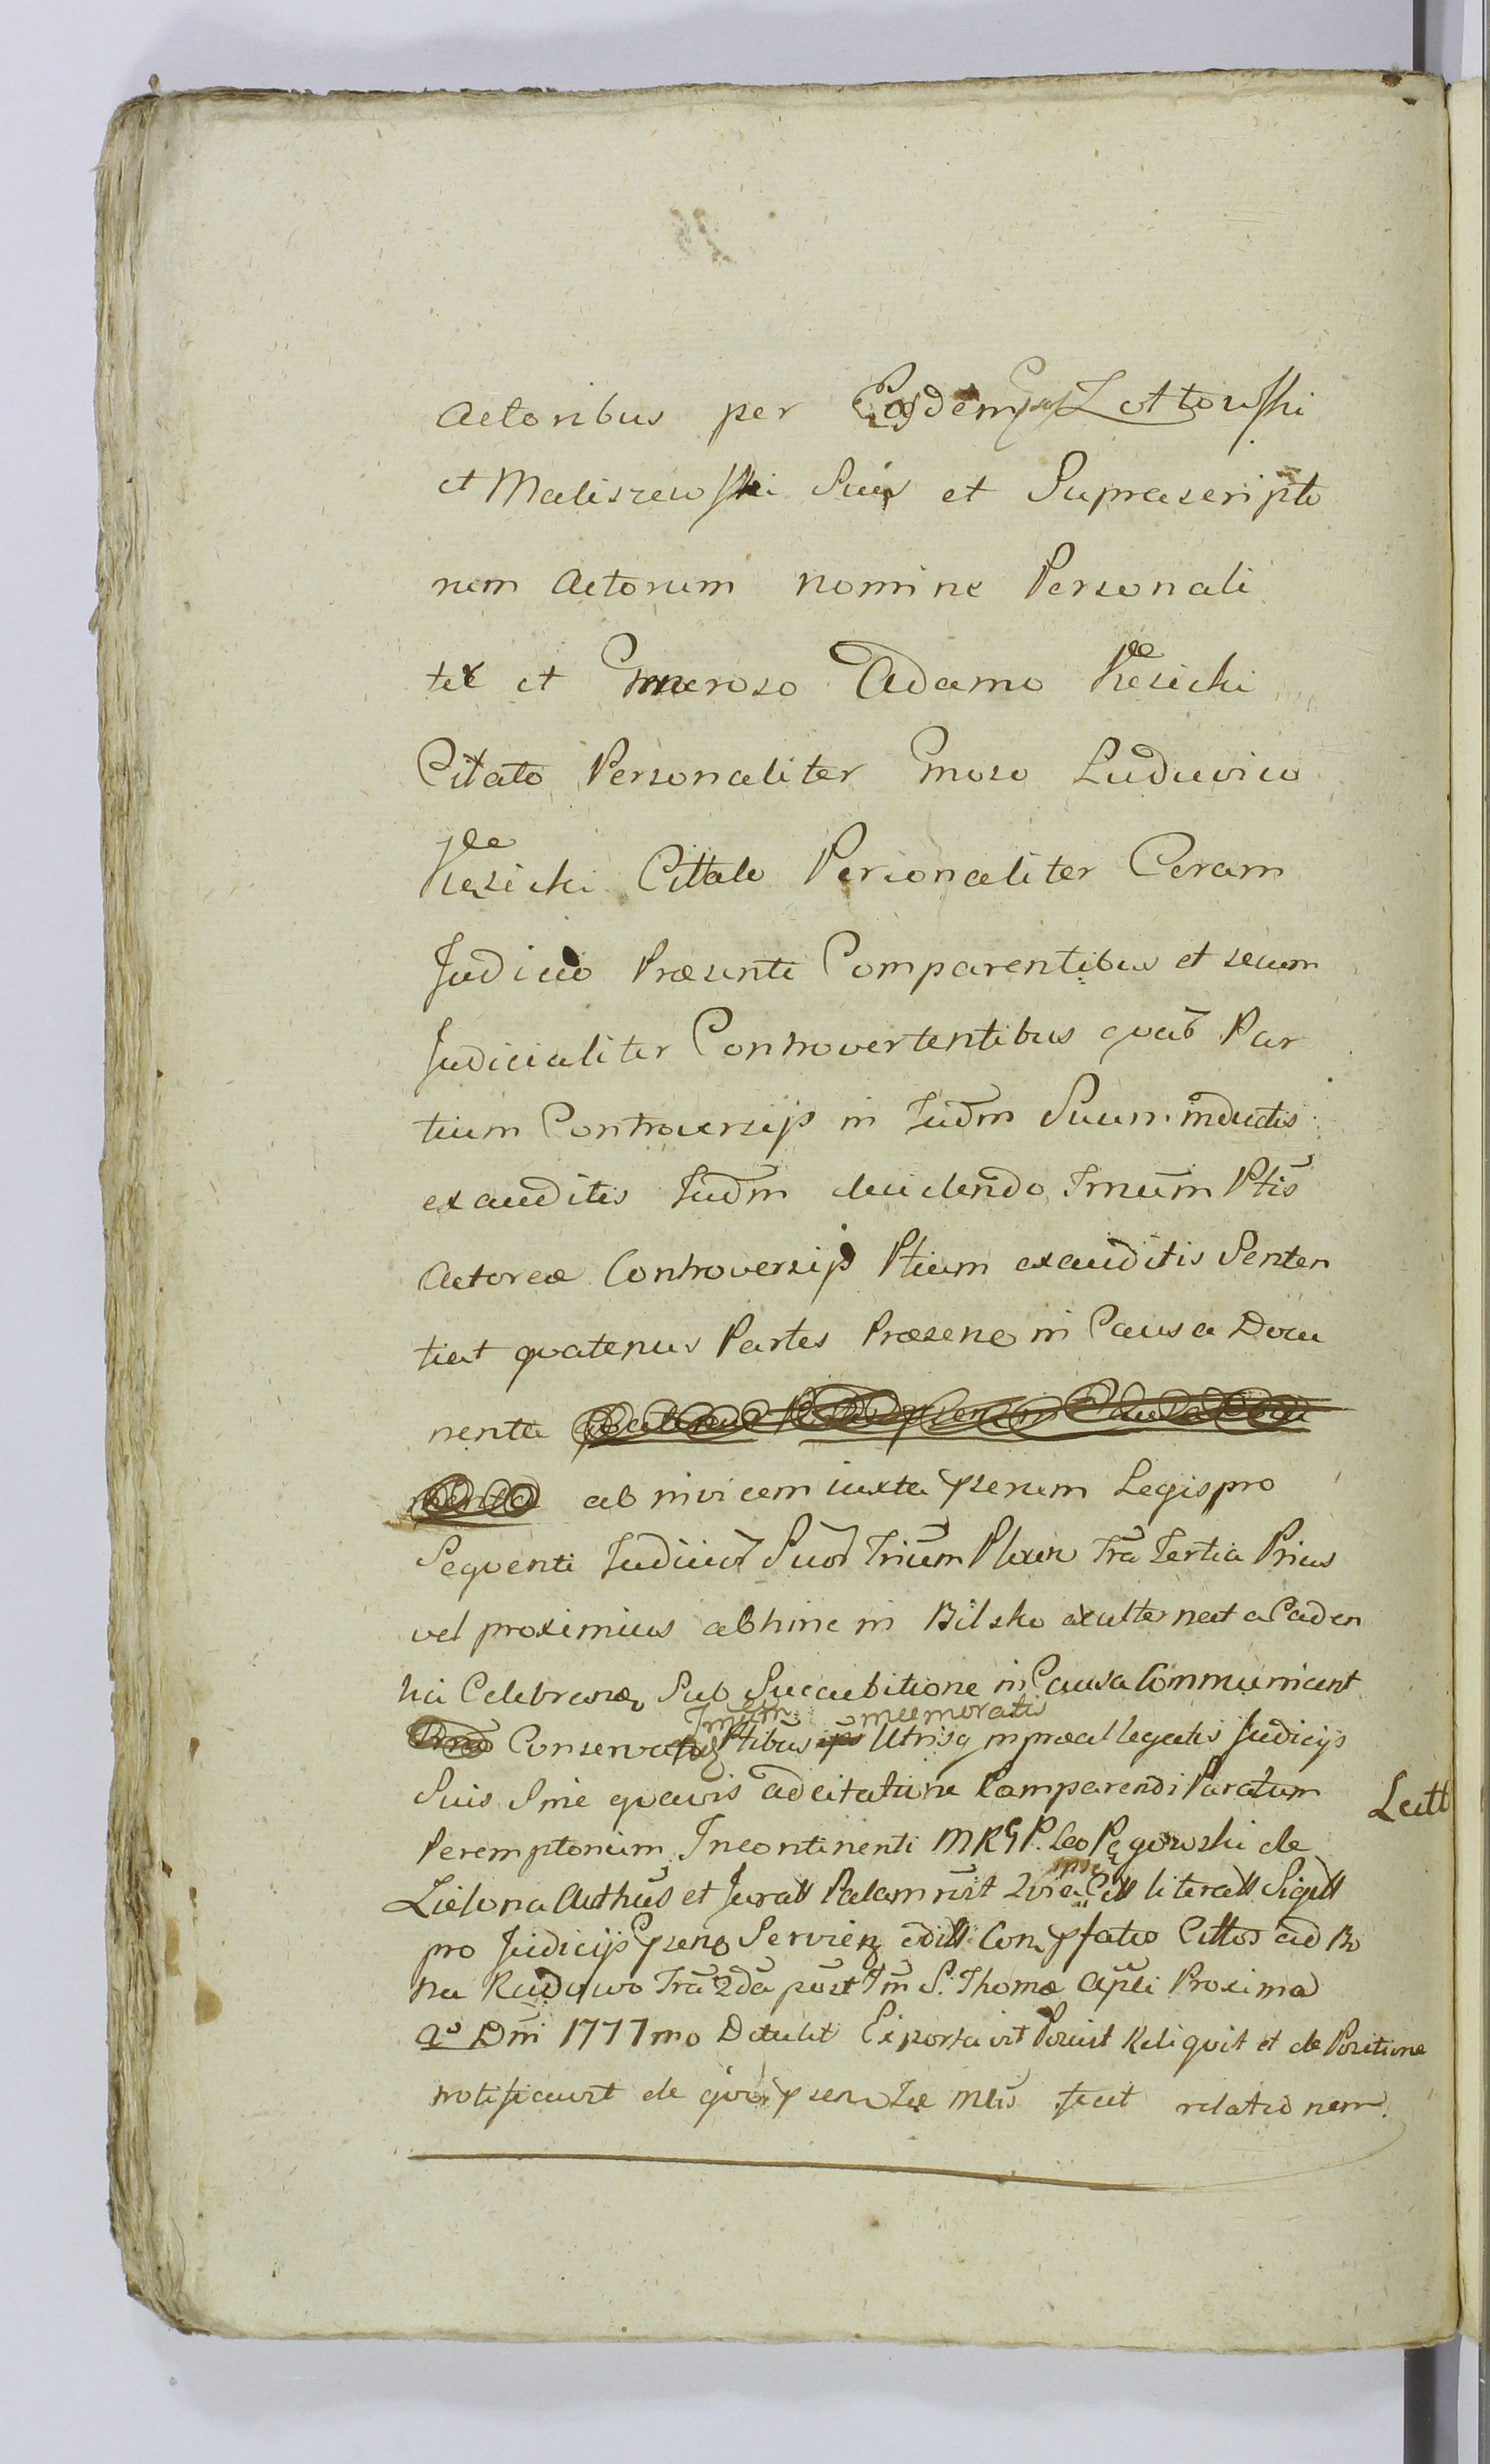 Actoribus per Eosdem Gsos Lettowski
et Maliszewski Suis et Suprascripto
rum Actorum nomine Personali
ter et Generoso Adamo Kęsicki
Citato Personaliter Gnoso Ludovico
Kęsicki Cittato Personaliter Coram
Judicio Præsenti Comparentibus et secum
Judicialiter Controvertentibus quarũ Par
tium Controversijs in Judm̃ Suum inductis
exauditis Judm̃ decidendo Trnum Ptis
Actoreæ Controversijs Ptium exauditis Senten
tiat quatenus Partes Præsene in Causa Docu
menta
ab invicem iuxta psenum Legis pro
Sequenti Judicior̃ Suor̃ Trium Pluen Fra Tertia Prius
vel proximius abhinc in Bilsko ex alternata Caden
tia Celebran Sub Succubitione in Causa Communicent
Trnum memoratis
Conservando Ptibus Utrisq in præallegatis Judicijs
Suis Sine quavis adcitatione Comparendi Paratum
Peremptorium Incontinenti MRGP. Leo Pęgowski de
Zielona Authus et Juratt Palam rũit Quia Citt literatt Sigill
ipse
pro Judicijs psenq Servienq editt Con pfatos Cittos ad Bo
na Rudowo Fra 2da post Fm S. Thomæ Apli Proxima
Ao Dni 1777mo Detulit Exportavit Posuit Reliquit et de Positione
notificavit de quo psen Suæ Mtis fecit relationem.
Latt